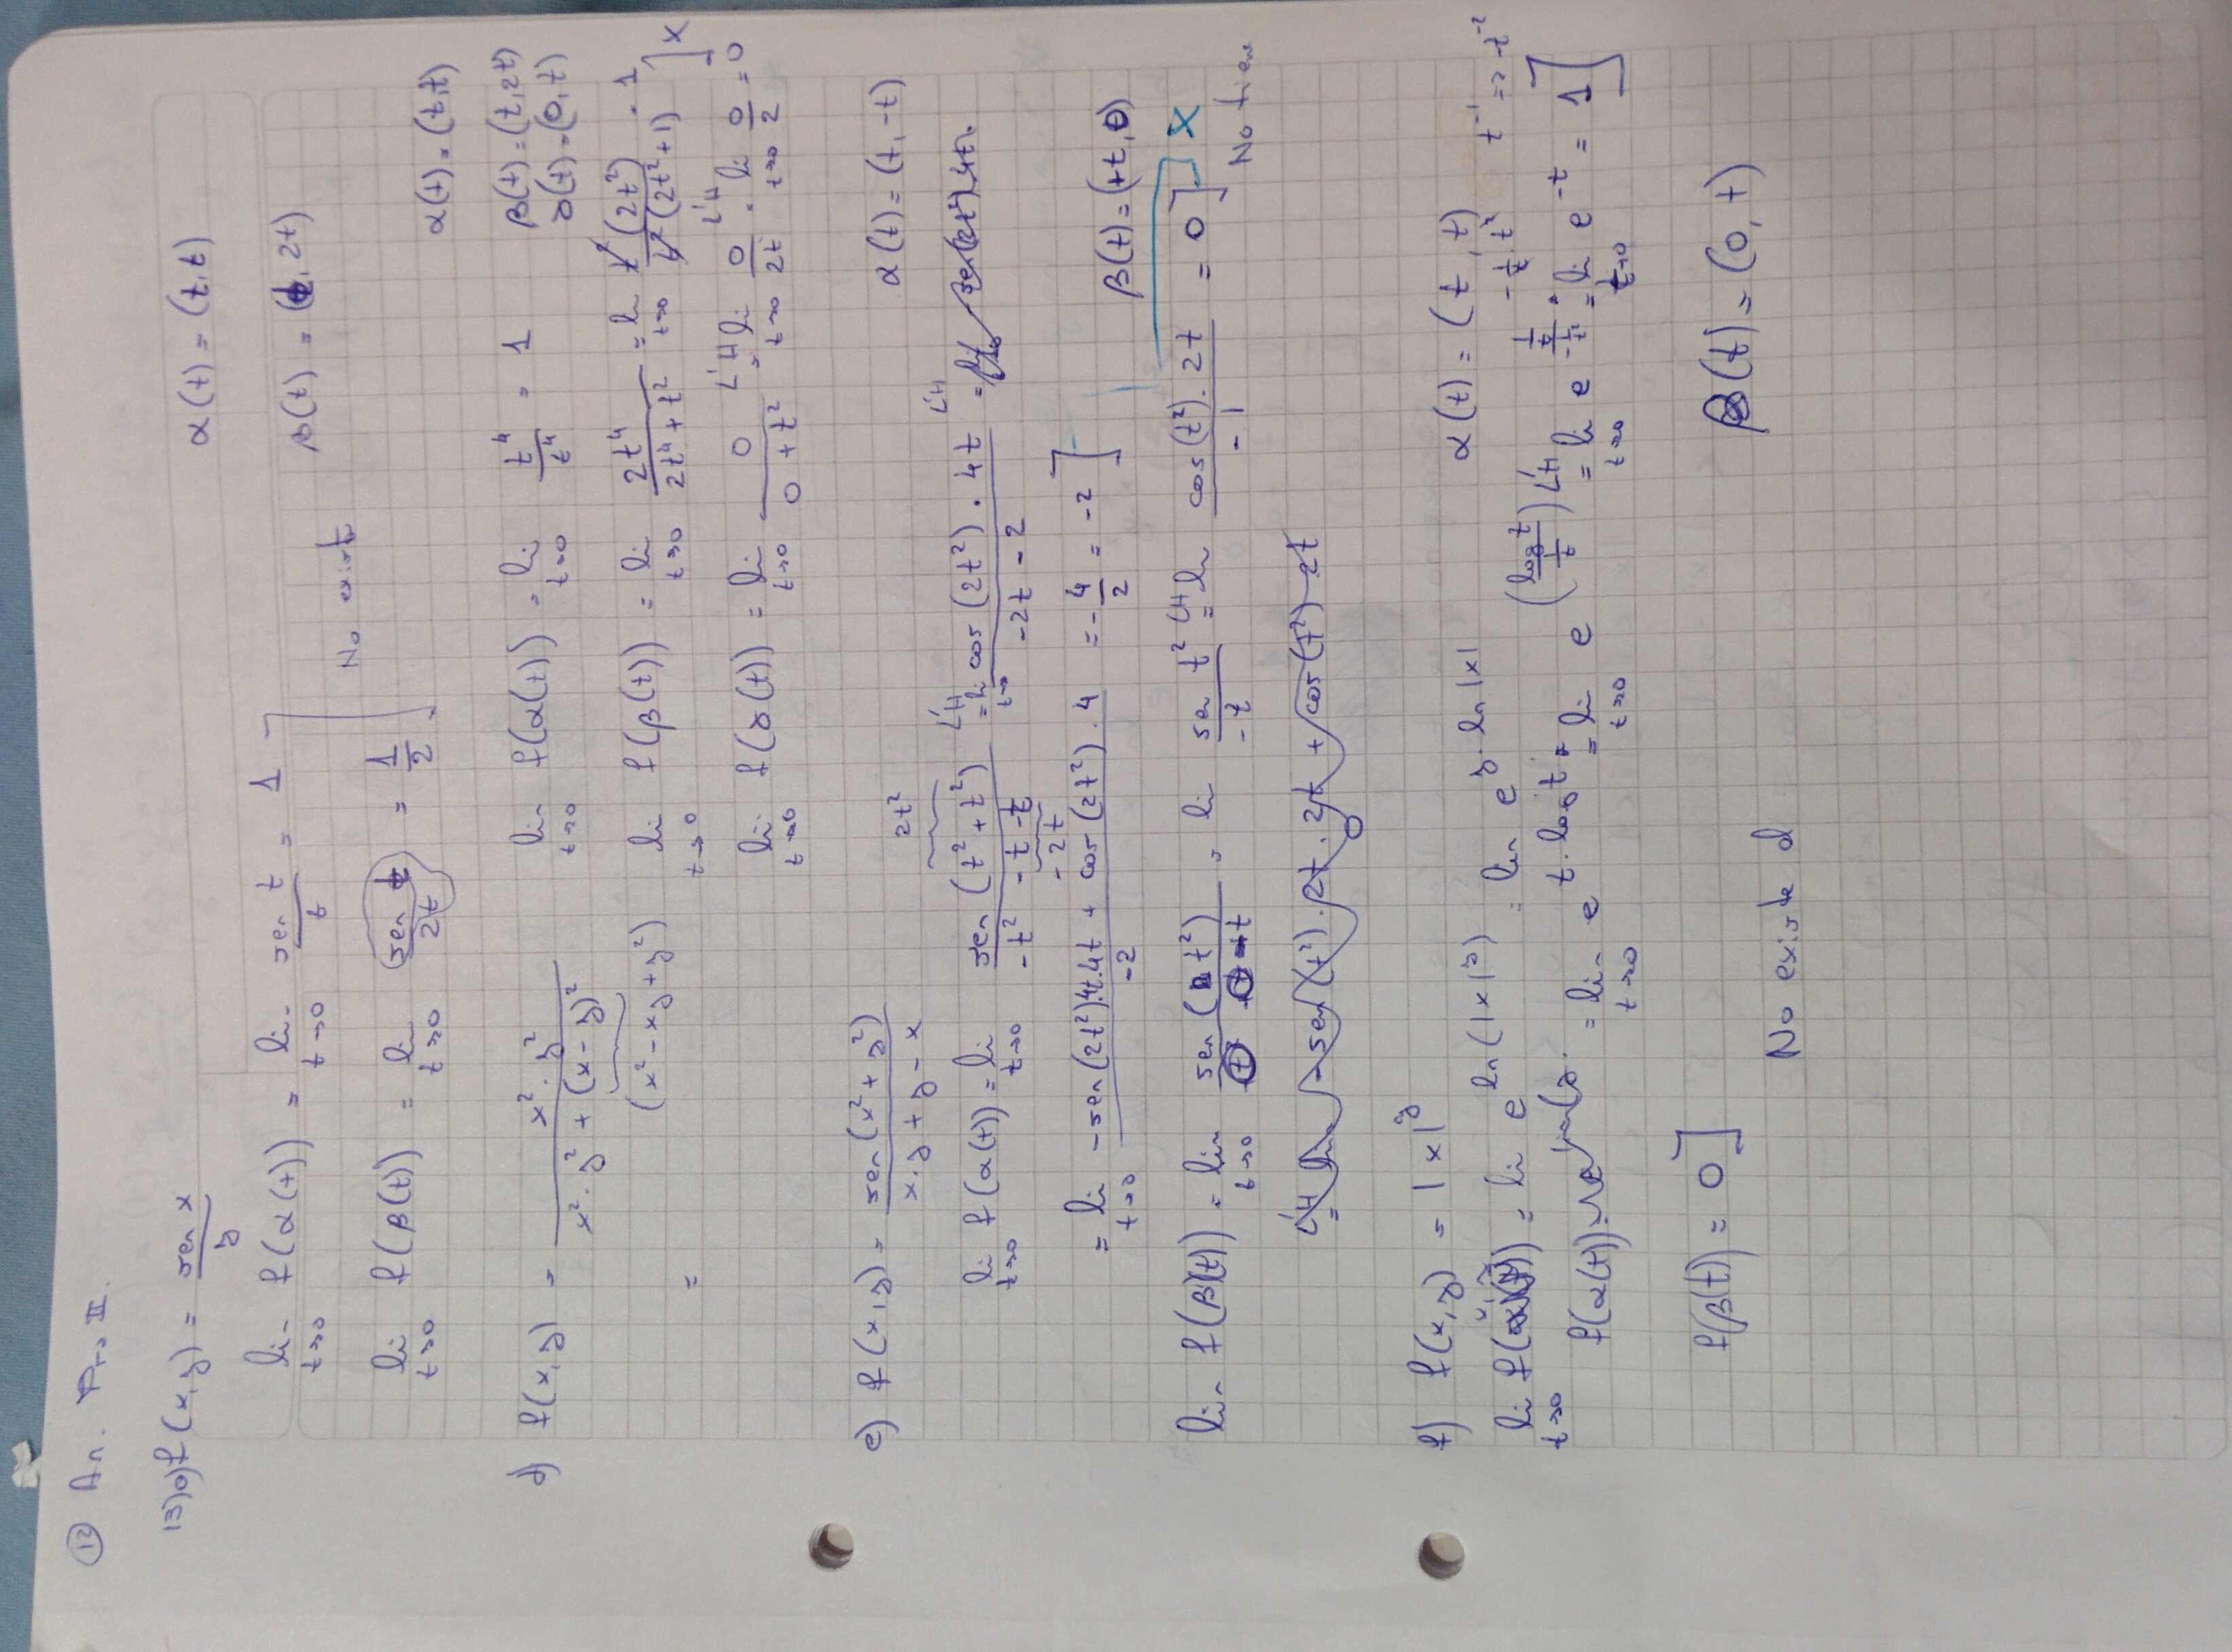 12 An. Pra II.
13) a) f(x,y) = sen x / y    α(t) = (t,t)
lim t→0 f(α(t)) = lim t→0 sen t / t = 1    β(t) = (t, 2t)
No existe
lim t→0 f(β(t)) = lim t→0 sen t / 2t = 1/2
α(t) = (t,t)
d) f(x,y) = x² · y² / x² · y² + (x-y)²    lim t→0 f(α(t)) = lim t→0 t⁴ / t⁴ = 1    β(t) = (t,2t)
γ(t) = (0,t)
(x² - xy + y²)    lim t→0 f(β(t)) = lim t→0 2t⁴ / 2t⁴ + t² = lim t→0 t² (2t²) / t² (2t² + 1) = 1
=    X
lim t→0 f(γ(t)) = lim t→0 0 / 0 + t² L'H = lim t→0 0 / 2t L'H = lim t→0 0 / 2 = 0
e) f(x,y) = sen(x² + y²) / x·y + y - x    α(t) = (t, -t)
2t²
lim t→0 f(α(t)) = lim t→0 sen(t² + t²) / -t² -t -t L'H = lim t→0 cos(2t²) · 4t / -2t - 2 L'H = lim - sen(2t²) 4t.
-2t
= lim t→0 -sen(2t²).4t.4t + cos(2t²) . 4 / -2 = -4/2 = -2
β(t) = (+t, 0)
lim f(β(t)) = lim t→0 sen(t²) / -t = lim sen t² / -t L'H = lim cos(t²) . 2t / -1 = 0    X
No tiene
L'H = lim - sen(t²) . 2t . 2t + cos(t²) 2t
0
f) f(x,y) = |x|^y    α(t) = (t, t)
-1/t · t²    t⁻¹ => -t⁻²
lim t→0 f(x,y) = lim e^ln(|x|^y) = lim e^y·ln|x|
f(α(t)) = lim t→0 e^t·log t = lim t→0 e^(log t / 1/t) L'H = lim t→0 e^(1/t / -1/t²) = lim t→0 e^-t = 1
f(β(t)) = 0    β(t) = (0, t)
No existe d